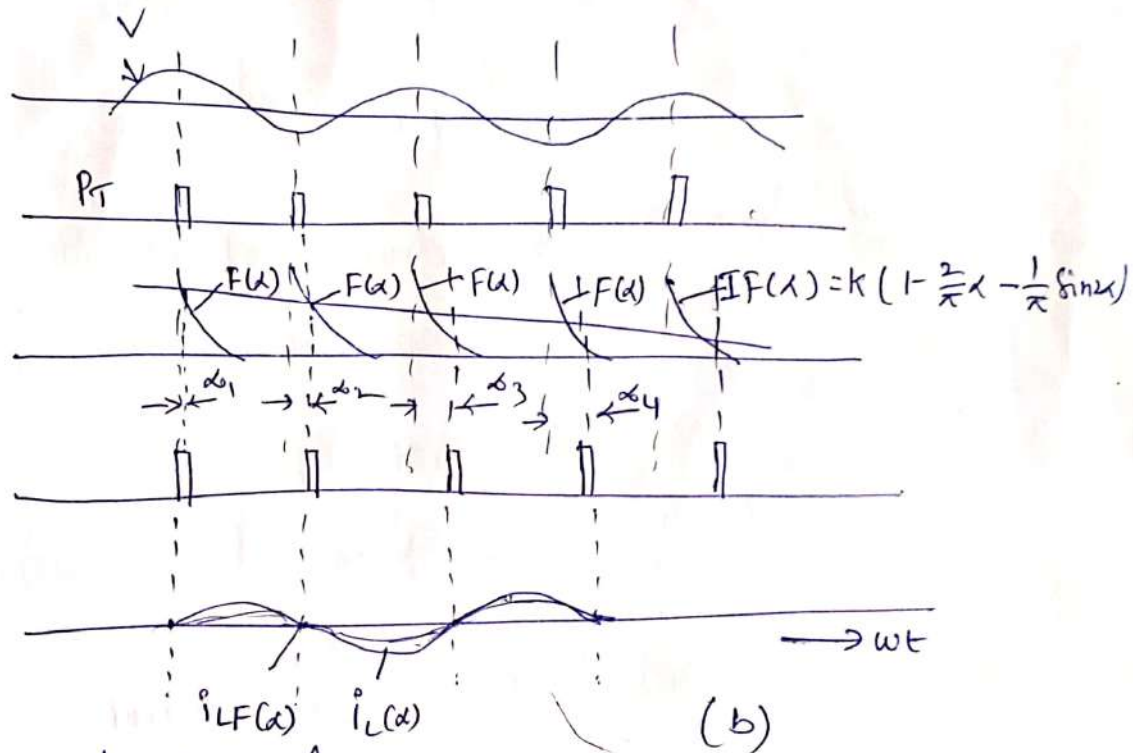 V
PT
F(α) F(α) F(α) F(α) IF(α) = K (1 - 2/π α - 1/π Sin2α)
α1 α2 α3 α4
→ ωt
iLF(α) iL(α)
(b)